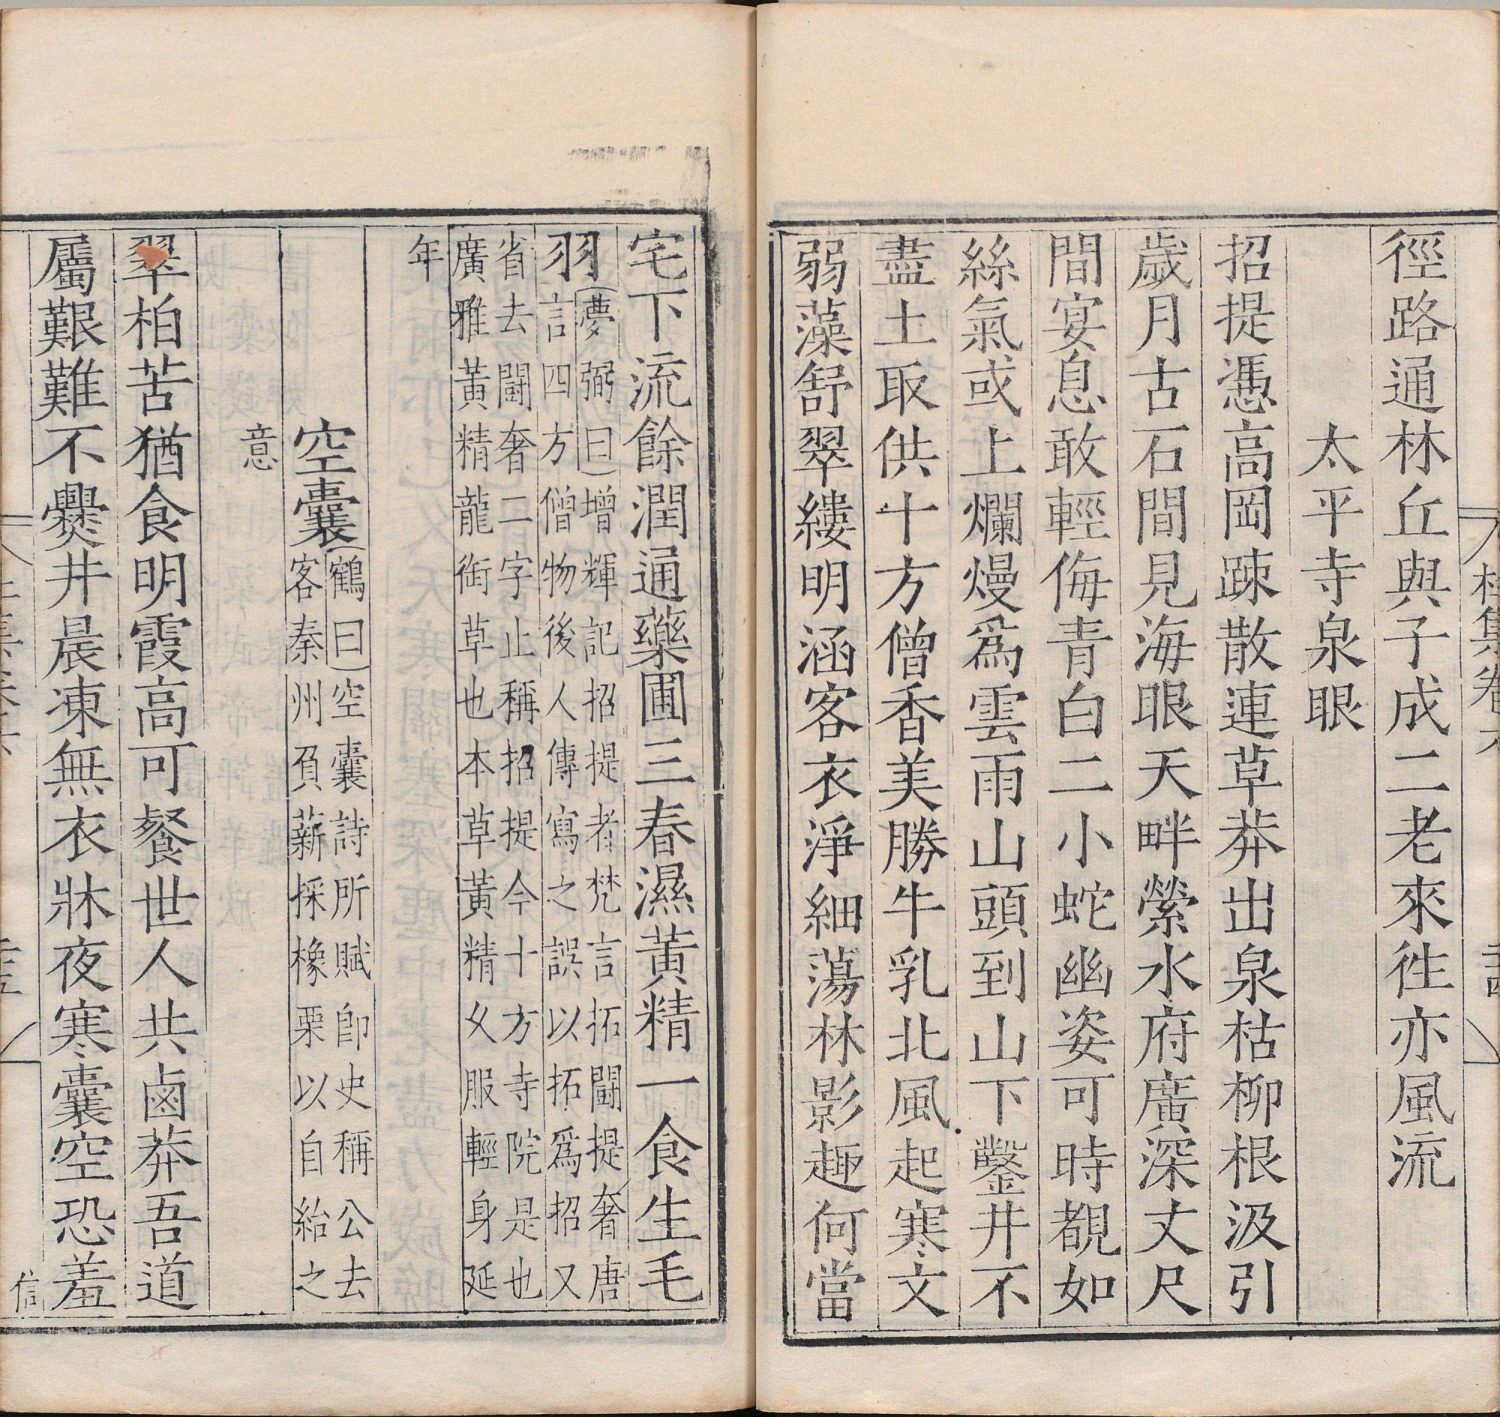 徑路通林丘與子成二老來徃亦風流
太平寺泉眼
招提憑高岡踈散連草莽出泉枯柳根汲引
歲月古石間見海眼天畔縈水府廣深丈尺
間宴息敢輕侮青白二小蛇幽姿可時覩如
絲氣或上爛熳爲雲雨山頭到山下鑿井不
盡土取供十方僧香美勝牛乳北風起寒文
弱藻舒翠縷明涵客衣淨細蕩林影趣何當
宅下流餘潤通藥圃三春濕黃精一食生毛
羽
夢弼曰增輝記招提者梵言拓鬬提奢唐
言四方僧物後人傳寫之誤以拓爲招又
省去鬬奢二字止稱招提今十方寺院是也
廣雅黃精龍銜草也本草黃精乆服輕身延
年
空囊
鶴曰空囊詩所賦卽史稱公去
客秦州負薪採橡栗以自給之
意
翠柏苦猶食明霞高可餐世人共鹵莽吾道
屬艱難不爨井晨凍無衣牀夜寒囊空恐羞
信